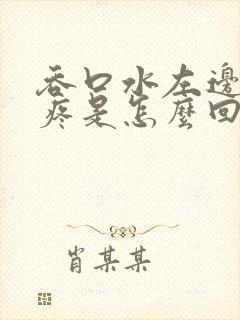 吞口水左邊
疼是怎麼回
肖某某